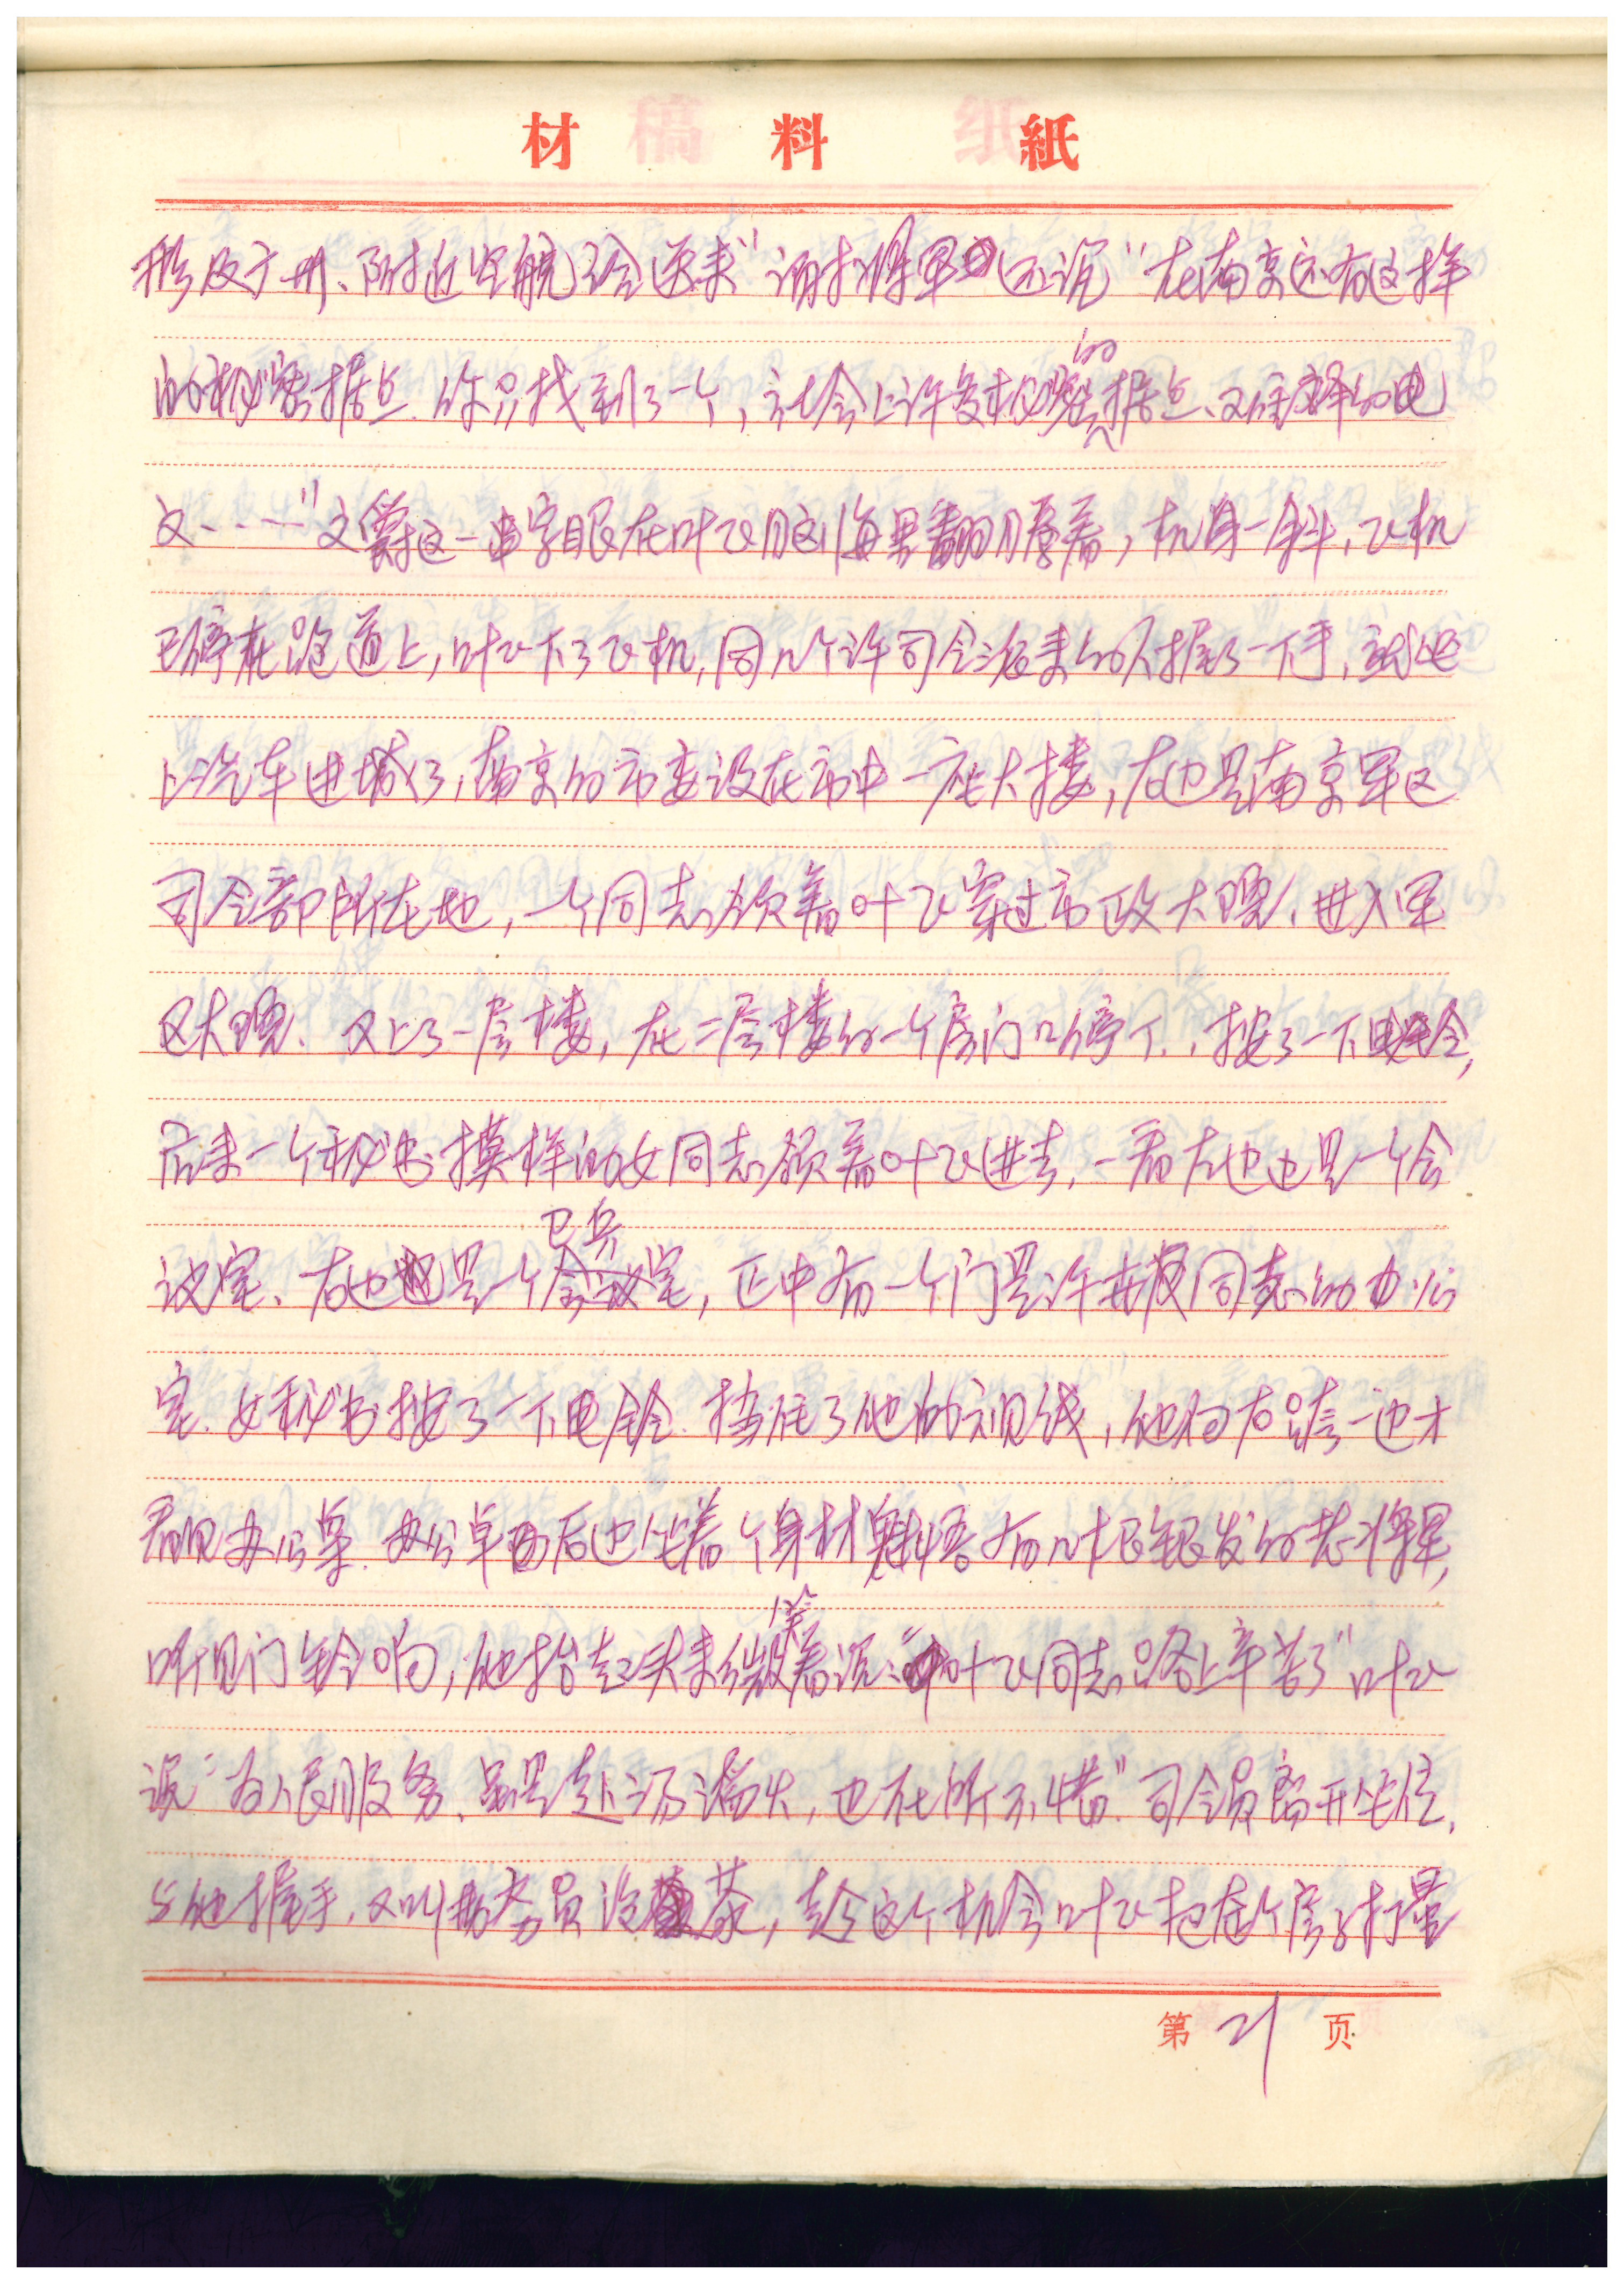 材料紙
形及于册、附近空航已给送来"谢打将军还说"在南京还有这样
的秘密据点、你只找到了一个,社会上许多秘密的据点、又使译的电
文····"这一串字眼在叶飞脑海里翻腾着,机身一斜,飞机
已停在跑道上,叶飞下了飞机,同几个许司令派来的人握了一下手,就迈
上汽车进城了,南京的市委设在市中一座大楼,右边是南京军区
司令部所在地,一个同志领着叶飞穿过市政大院、进入军
区大院、又上了一层楼,在二层楼的一个房门口停下,按了一下电铃,
后来一个秘书摸样的女同志领着叶飞进去,一看左边也是一个会
议室、右边是一个卫兵室,正中有一个门是许世友同志的办公
室、女秘书按了一下电铃、挡住了他的视线,他向右跨一边才
看见办公桌、办公桌后边坐着个身材魁梧有几根银发的老将军,
听见门铃响,他抬起头来微笑着说:"叶飞同志路上辛苦了"叶飞
说"为人民服务、虽是赴汤蹈火,也在所不惜"司令员离开坐位,
与他握手,又叫勤务员沒茶,趁这个机会叶飞把这个房子打量
第21页